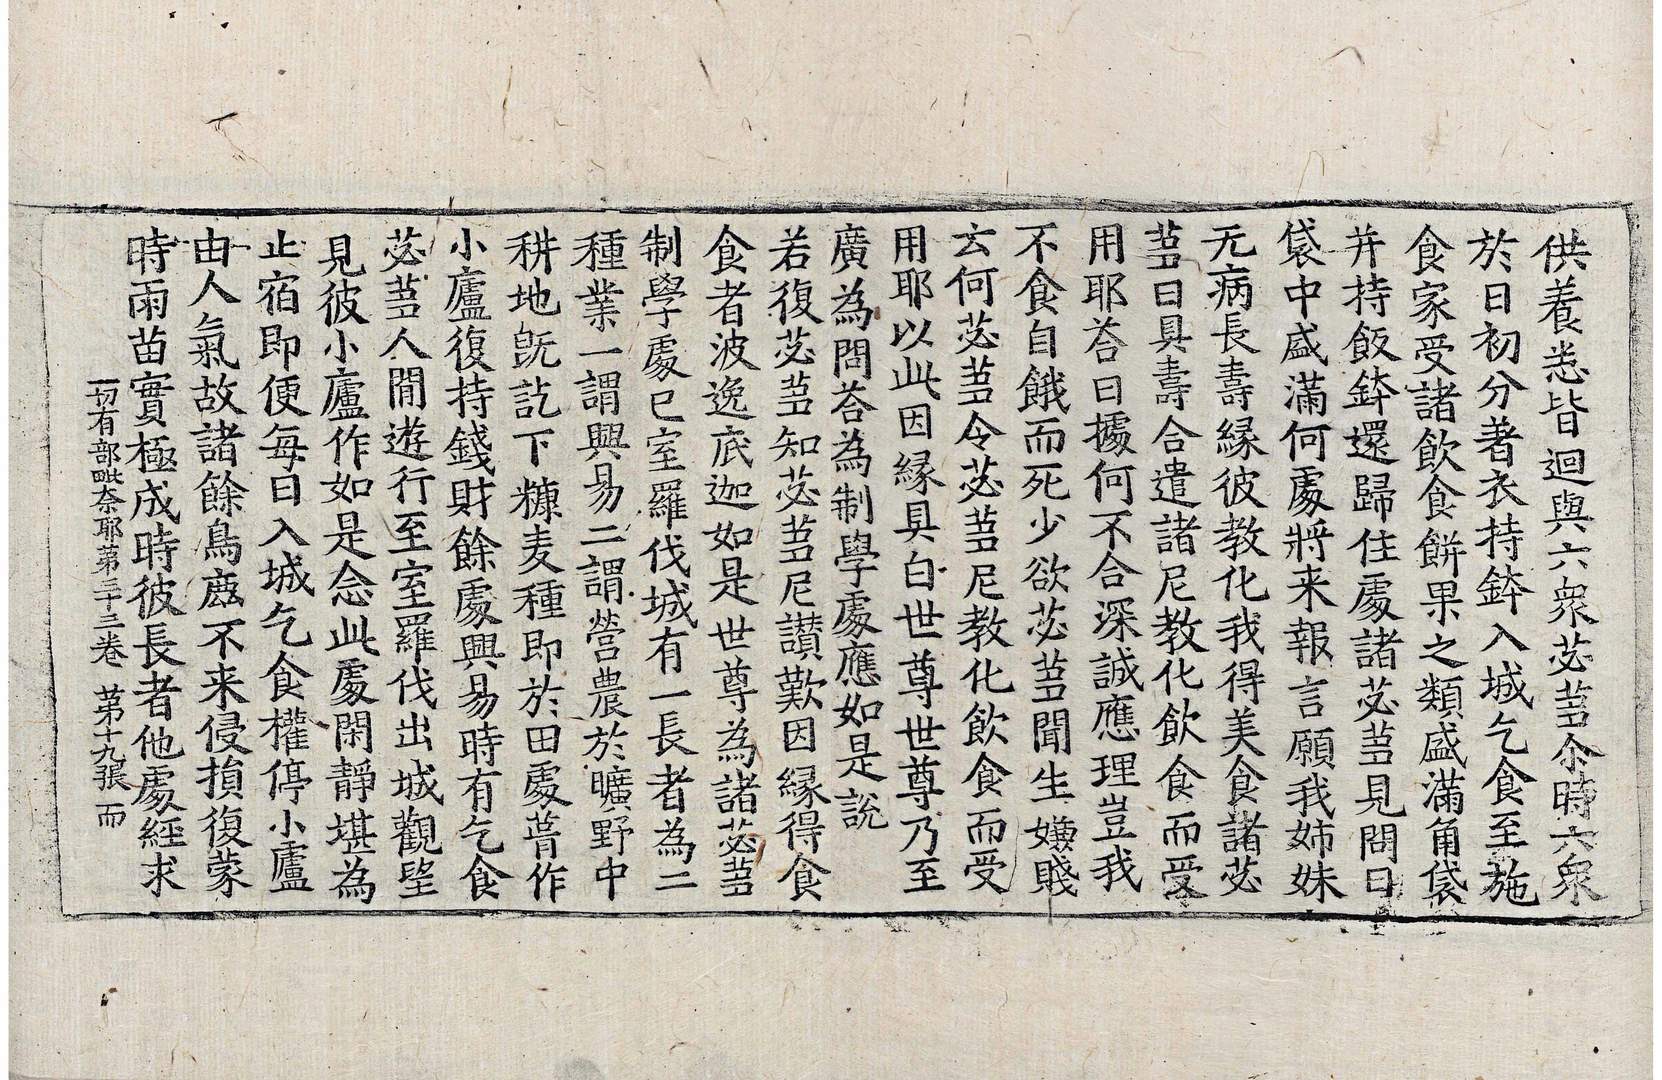 供養悉皆迴與六衆苾芻尒時六衆
於日初分著衣持鉢入城乞食至施
食家受諸飲食餅果之類盛滿角袋
并持飯鉢還歸住處諸苾芻見問曰
袋中盛滿何處將来報言願我姉妹
无病長壽縁彼教化我得美食諸苾
芻曰具壽合遣諸尼教化飲食而受
用耶荅曰據何不合深誠應理豈我
不食自餓而死少欲苾芻聞生嫌賤
云何苾芻令苾芻尼教化飲食而受
用耶以此因縁具白世尊世尊乃至
廣為問荅為制學處應如是說
若復苾芻知苾芻尼讃歎因縁得食
食者波逸底迦如是世尊為諸苾芻
制學處已室羅伐城有一長者為二
種業一謂興易二謂營農於曠野中
耕地既訖下糠麦種即於田處葺作
小廬復持錢財餘處興易時有乞食
苾芻人間遊行至室羅伐出城觀望
見彼小廬作如是念此處閑靜堪為
止宿即便每日入城乞食權停小廬
由人氣故諸餘鳥鹿不来侵損復蒙
時雨苗實極成時彼長者他處經求
一切有部毗奈耶第三十三卷 第十九張 而